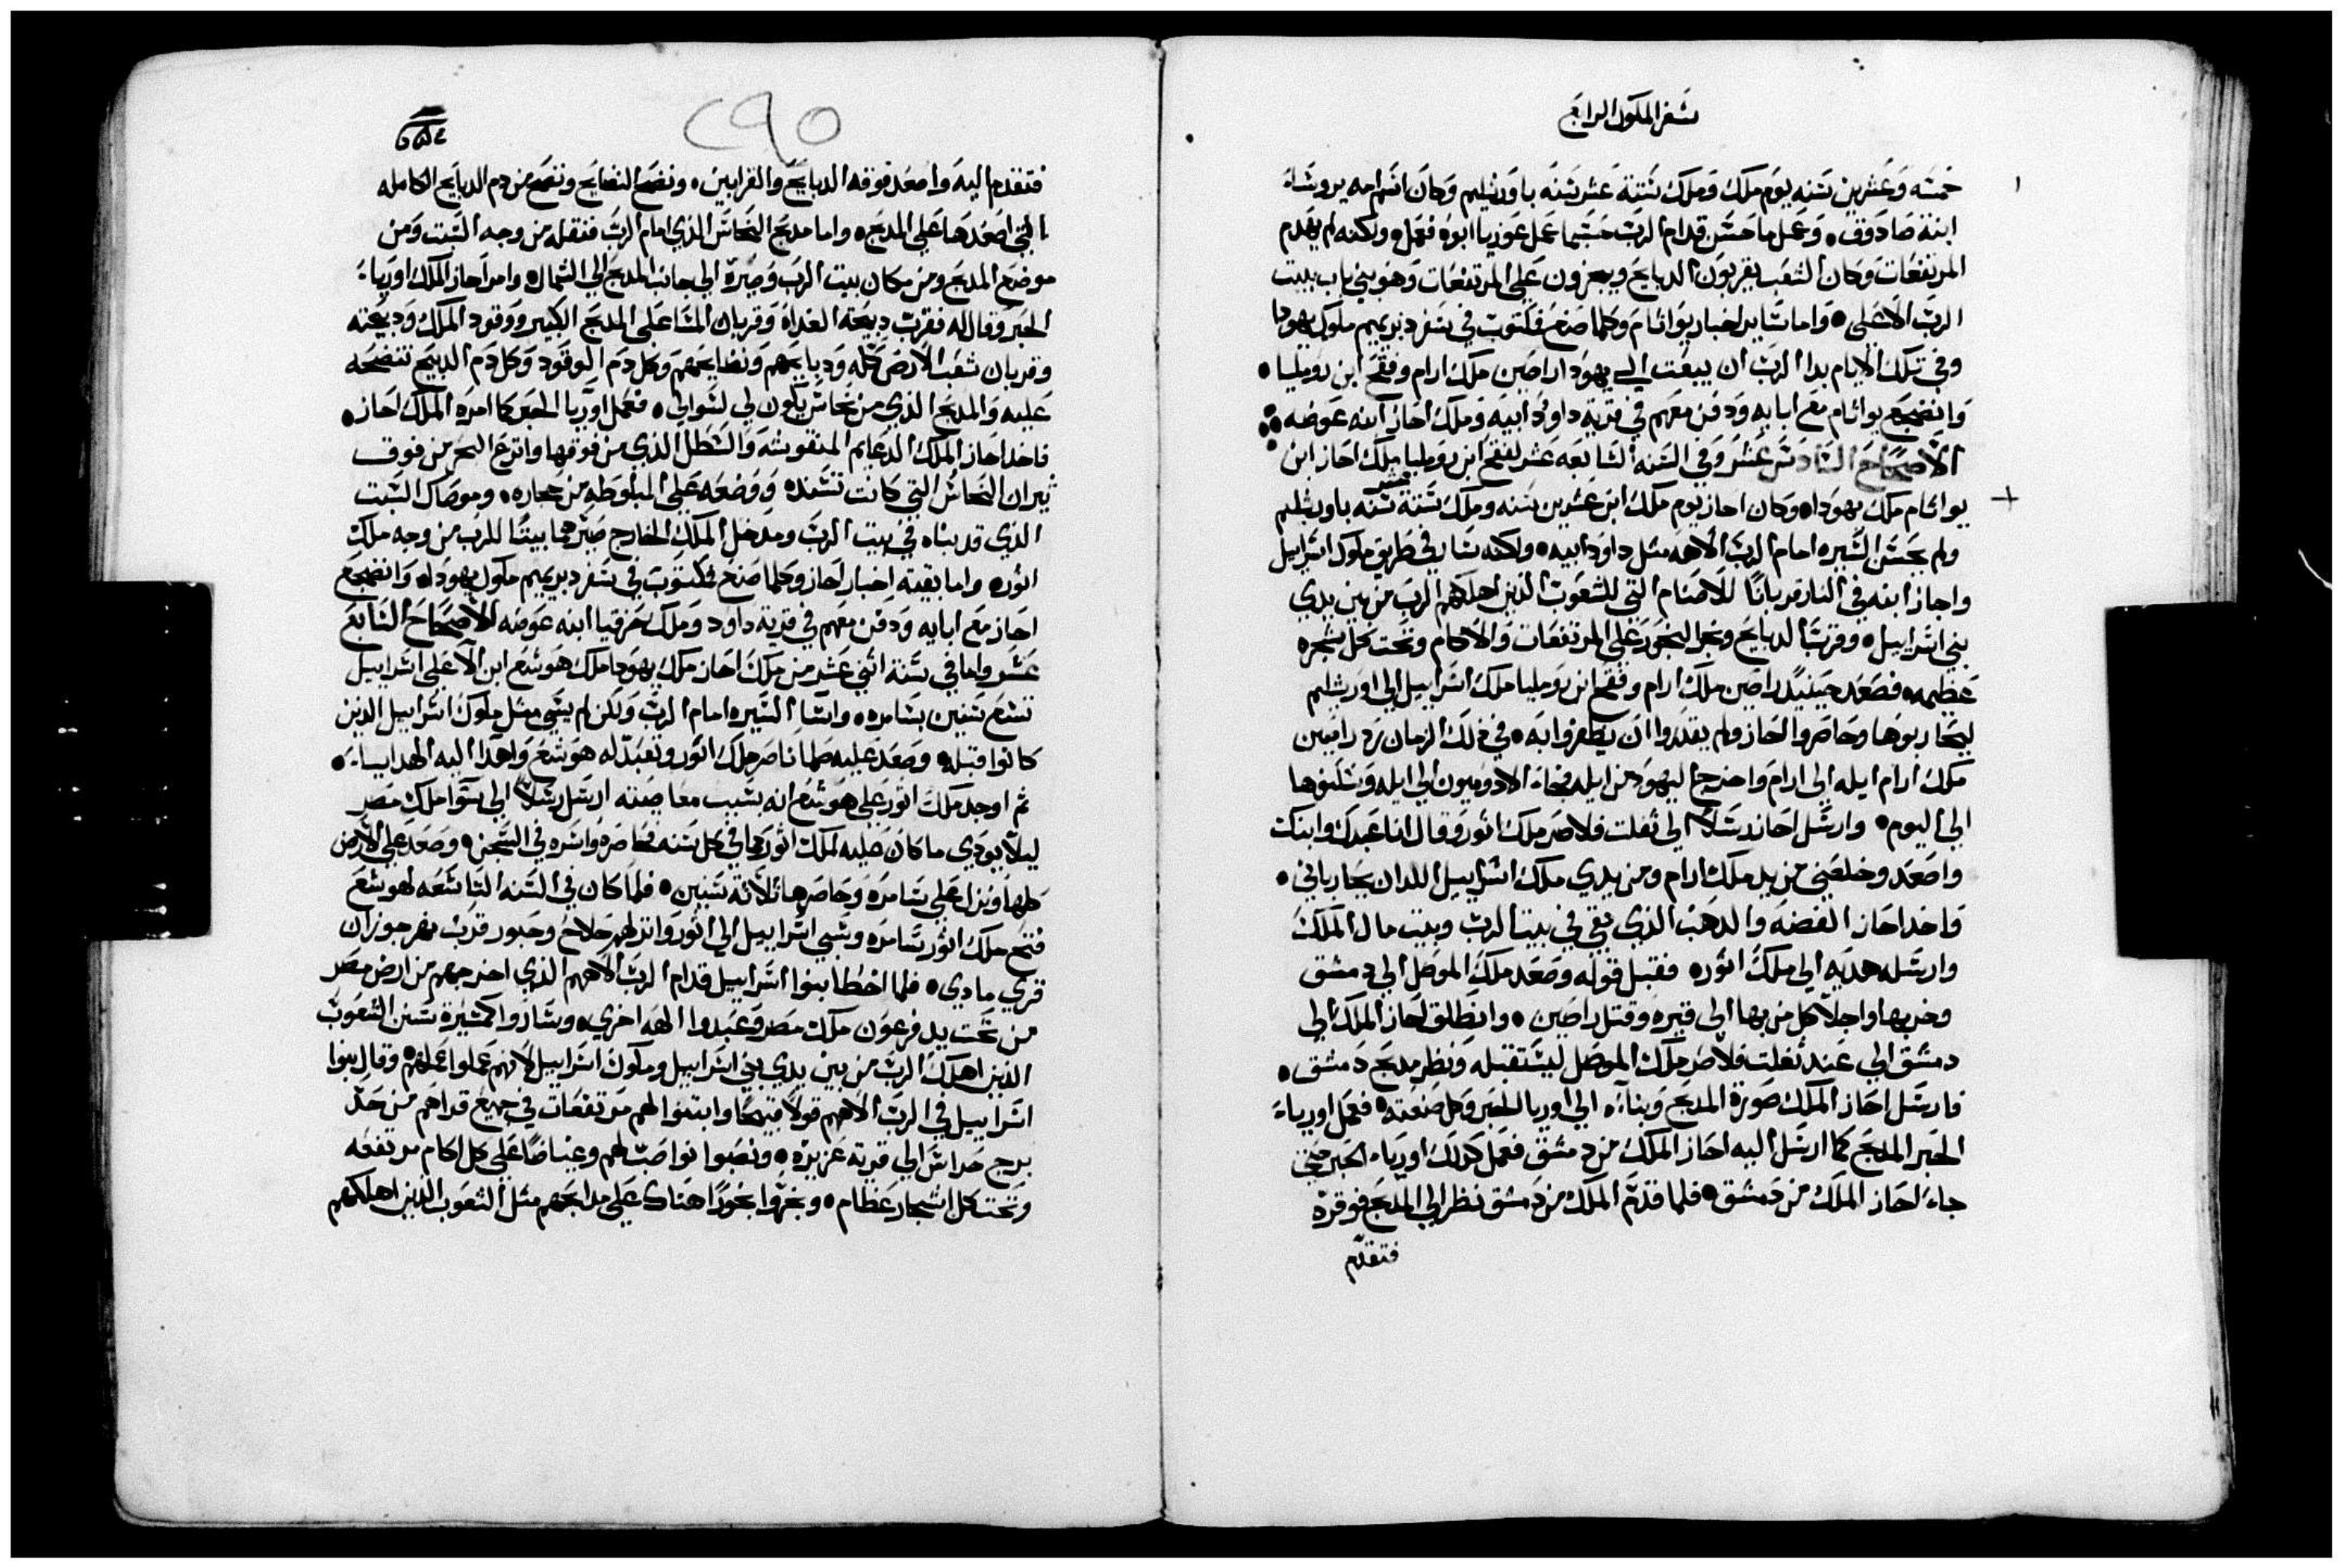 سفر الملوك الرابع
خمسه وعشرين سنه يوم ملك وملك ستة عشر سنه باورشليم وكان اسم امه يروشاء
ابنة صادوق وعمل ما حسن قدام الرب حسبما عمل عوزيا ابوه فعمل ولكنه لم يهدم
المرتفعات وكان الشعب يقربون الدبايح ويبخرون علي المرتفعات وهو بني باب بيت
الرب الاعلي واما ساير اخبار يواثام وكلما صنع فمكتوب في سفر دبريميم ملوك يهودا
وفي تلك الايام بدا الرب ان يبعت الي يهودا راصين ملك ارام وفقح ابن روميليا
وانضجع يواثام مع ابايه ودفن معهم في قرية داوود ابيه وملك احاز ابنه عوضه
الاصحاح السادس عشر وفي السنه السابعه عشر لفقح ابن روميليا ملك احاز ابن
يواثام ملك يهودا وكان احاز يوم ملك ابن عشرين سنه وملك ستة عشر سنه باورشليم
ولم يحسن السيره امام الرب الاهه مثل داود ابيه ولكنه سار في طريق ملوك اسراييل
واجاز ابنه في النار قربانا للاصنام التي للشعوب الذين اهلكهم الرب من بين يدي
بني اسراييل وقرب الدبايح وبخر البخور علي المرتفعات والاكام وتحت كل شجره
عظيمه فصعد حينيد راصين ملك ارام وفقح ابن روميليا ملك اسراييل الي اورشليم
ليحاربوها وحاصروا احاز ولم يقدروا ان يظفروا به في ذلك الزمان رد راصين
ملك ارام ايله الي ارام واخرج اليهود من ايله فجاء الادوميون الي ايله وسكنوها
الي اليوم وارسل احاز رسلا الي تغلت فلاصر ملك اثور وقال انا عبدك وابنك
واصعد وخلصني من يد ملك ارام ومن يدي ملك اسراييل اللدان يحارباني
فاخد احاز الفضه والدهب الذي بقي في بيت الرب وبيت مال الملك
وارسله هديه الي ملك اثوره فقبل قوله وصعد ملك الموصل الي دمشق
وخربها واجلا كل من بها الي قيره وقتل راصين وانطلق احاز الملك الي
دمشق الي عند تغلت فلاصر ملك الموصل ليستقبله ونظر مدبح دمشق
فارسل احاز الملك صورة المدبح وبناه الي اوريا الحبر وكل صنعته فعمل اورياء
الحبر المدبح كما ارسل اليه احاز الملك من دمشق فعمل كدلك اورياء الحبر حتي
جاء احاز الملك من دمشق فلما قدم الملك من دمشق نظر الي المدبح فوقره
فتقدم
٢٩٥
فتقدم اليه واصعد فوقه الدبايح والقرابين ونضح النضايح ونضح من دم الدبايح الكامله
التي اصعدها علي المدبح واما مدبح النحاس الذي امام الرب فنقله من وجه البيت ومن
موضع المدبح ومن مكان بيت الرب وصيره الي جانب المدبح الي الشمال وامر احاز الملك اورياء
الحبر وقال له فقرب دبيحة الغداة وقربان المسا علي المدبح الكبير ووقود الملك ودبيحته
وقربان شعب الارض كله ودبايحهم ونضايحهم وكل دم الوقود وكل دم الدبيح تنضحه
عليه والمدبح الذي من نحاس يكون لي لسوالي فعمل اوريا الحبر كما امره الملك احاز
فاخد احاز الملك الدعايم المنقوشه والسطل الذي من فوقها وانزع البحر من فوق
تيران النحاس التي كانت تسنده ووضعه علي المبلوطه من حجاره وموصاك السبت
الذي قد بناه في بيت الرب ومدخل الملك الخارج صيرهما بيتا للرب من وجه ملك
اثوره واما بقية اخبار احاز وكلما صنع فمكتوب في سفر دبريميم ملوك يهودا وانضجع
احاز مع ابايه ودفن معهم في قرية داود وملك حزقيا ابنه عوضه الاصحاح السابع
عشر واما في سنة اثني عشر من ملك احاز ملك يهودا ملك هوشع ابن الا علي اسراييل
تسع سنين بسامره واسا السيره امام الرب ولكن لم يسي مثل ملوك اسراييل الدين
كانوا قبله وصعد عليه سلماناصر ملك اثور وتعبد له هوشع واهدا اليه الهدايا
ثم اوجد ملك اثور علي هوشع انه بسبب معاصيته ارسل رسلا الي سوا ملك مصر
ليلا يودي ما كان عليه لملك اثور كما في كل سنه فحاصره واسره في السجن وصعد علي الارض
كلها ونزل علي سامره وحاصرها ثلاثة سنين فلما كان في السنه التاسعه لهوشع
فتح ملك اثور سامره وسبي اسراييل الي اثور وانزلهم حلاح وحبور قرب نهر جوزان
قري مادي فلما اخطا بنوا اسراييل قدام الرب الاههم الذي اخرجهم من ارض مصر
من تحت يد فرعون ملك مصر وعبدوا الهه اخري وساروا كمسيرة سنن الشعوب
الذين اهلك الرب من بين يدي بني اسراييل وملوك اسراييل لانهم عملوا عملهم وقال بنوا
اسراييل في الرب الاههم قولا قبيحا وابتنوا لهم مرتفعات في جميع قراهم من حد
برج حراس الي قرية عزيزه ونصبوا نواصب لهم وغياضا علي كل اكام مرتفعه
وتحت كل اشجار عظام وبخروا بخورا هناك علي مدابحهم مثل الشعوب الذين اهلكهم